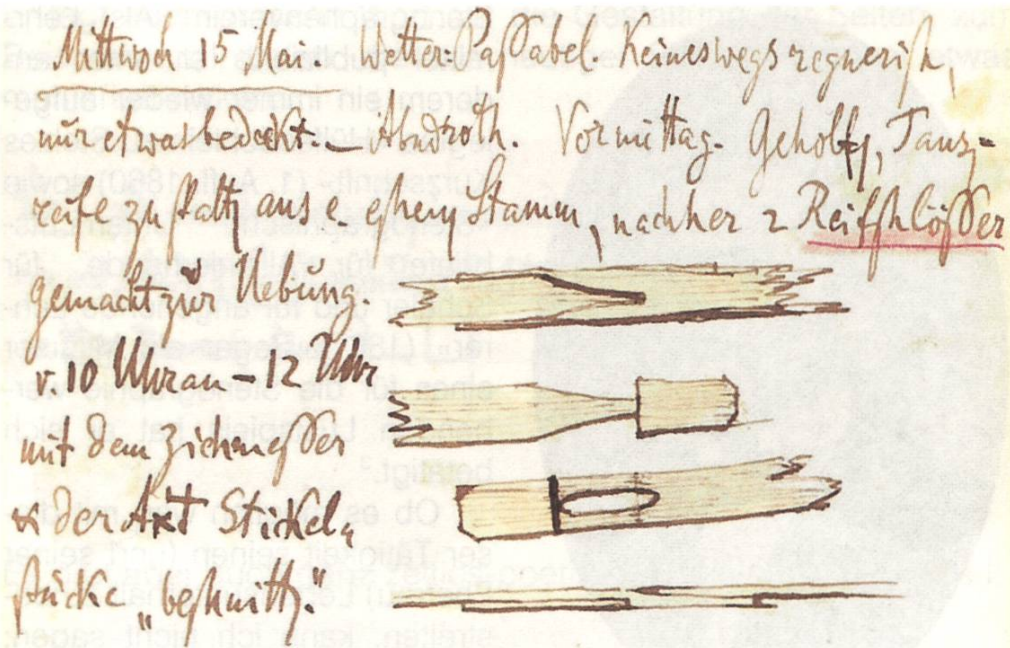 Mittwoch 15 Mai. Wetter: Passabel. Keineswegs regnerisch,
nur etwas bedeckt. – Abndroth. Vormittag. Geholfen, Fanz-
reife zu spalten aus e. eschenen Stamm, nachher 2 Reifschlösser
gemacht zur Uebung.
v. 10 Uhr an – 12 Uhr
mit dem Ziehmesser
& der Axt Stickel-
stücke „beschnitten."